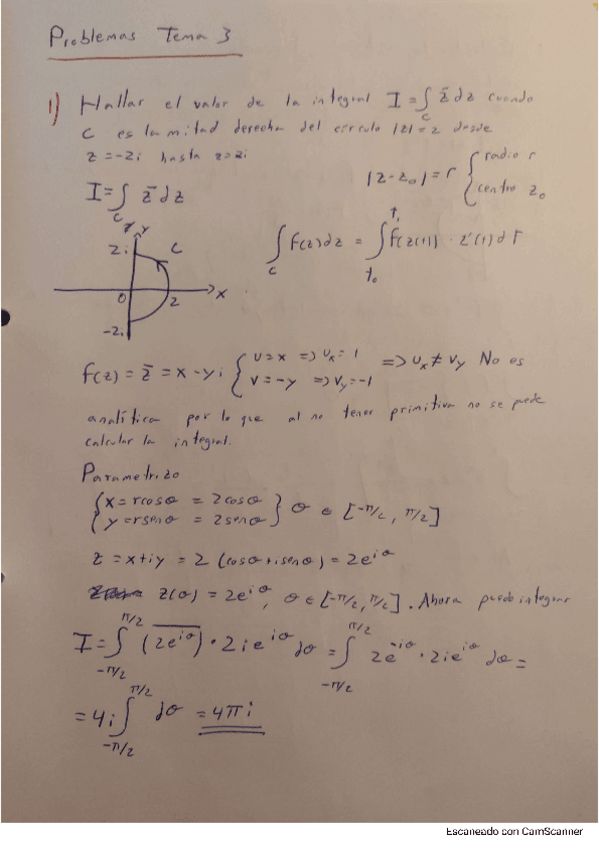 Problemas Tema 3
1) Hallar el valor de la integral I = ∫_C z̄ dz cuando
C es la mitad derecha del circulo |z| = 2 desde
z = -2i hasta z = 2i
|z - z₀| = r { radio r
centro z₀
I = ∫_C z̄ dz
∫_C f(z) dz = ∫_{t₀}^{t₁} f(z(t)) · z'(t) dt
y
2i
C
0
2
x
-2i
f(z) = z̄ = x - yi { u = x => u_x = 1
v = -y => v_y = -1
=> u_x ≠ v_y No es
analítica por lo que al no tener primitiva no se puede
calcular la integral.
Parametrizo
{ x = rcosθ = 2cosθ
y = rsenθ = 2senθ } θ ∈ [-π/2, π/2]
z = x + iy = 2 (cosθ + isenθ) = 2e^{iθ}
z(θ) = 2e^{iθ}, θ ∈ [-π/2, π/2]. Ahora puedo integrar
I = ∫_{-π/2}^{π/2} \overline{(2e^{iθ})} · 2ie^{iθ} dθ = ∫_{-π/2}^{π/2} 2e^{-iθ} · 2ie^{iθ} dθ =
= 4i ∫_{-π/2}^{π/2} dθ = 4πi
Escaneado con CamScanner